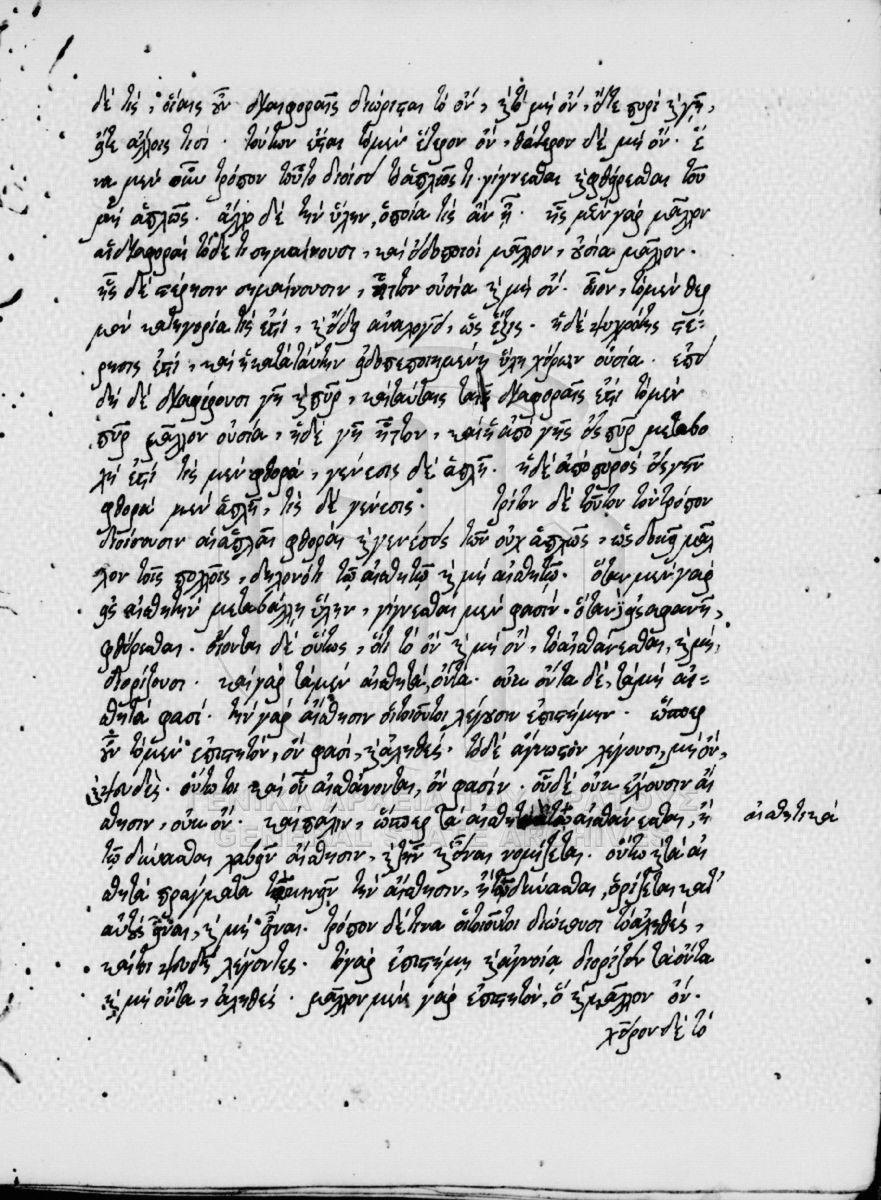 δέ τις, οἵαις οὖν διαφοραῖς διώρισται τὸ ὄν, καὶ τὸ μὴ ὄν, εἴτε πυρὶ καὶ γῇ,
εἴτε ἄλλοις τισί. τούτων ἔσται τὸ μὲν ἕτερον ὄν, θάτερον δὲ μὴ ὄν. ἕ
να μὲν οὖν τρόπον τοῦτο διοίσει τὸ ἁπλῶς τι γίγνεσθαι καὶ φθείρεσθαι τοῦ
μὴ ἁπλῶς. ἄλλον δὲ τὴν ὕλην, ὁποία τις ἂν ᾖ. ἧς μὲν γὰρ μᾶλλον
αἱ διαφοραὶ τόδε τι σημαίνουσι, καὶ εἰδοποιοὶ μᾶλλον, οὐσία μᾶλλον.
ἧς δὲ στέρησιν σημαίνουσιν, ἧττον οὐσία καὶ μὴ ὄν. οἷον, τὸ μὲν θερ
μὸν κατηγορία τίς ἐστι, καὶ εἴδει ἀναλογεῖ, ὡς ἕξις. ἡ δὲ ψυχρότης στέ-
ρησις ἐστί, καὶ ἡ κατὰ ταύτην εἰδοπεποιημένη ὕλη χείρων οὐσία. ἐπει
δὴ δὲ διαφέρουσι γῆ καὶ πῦρ, καὶ ταύταις ταῖς διαφοραῖς ἐστὶ τὸ μὲν
πῦρ μᾶλλον οὐσία, ἡ δὲ γῆ ἧττον, καὶ ἡ ἀπὸ γῆς εἰς πῦρ μεταβο
λὴ ἐστὶ τὶς μὲν φθορά, γένεσις δὲ ἁπλῆ. ἡ δὲ ἀπὸ πυρὸς εἰς γῆν
φθορὰ μὲν ἁπλῆ, τὶς δὲ γένεσις. τρίτον δὲ τοῦτον τὸν τρόπον
διοίσουσιν αἱ ἁπλαῖ φθοραὶ καὶ γενέσεις τῶν οὐχ ἁπλῶς, ὡς δοκεῖ μᾶλ
λον τοῖς πολλοῖς, δηλονότι τῷ αἰσθητῷ καὶ μὴ αἰσθητῷ. ὅταν μὲν γὰρ
εἰς αἰσθητὴν μεταβάλλῃ ὕλην, γίγνεσθαι μὲν φασίν. ὅταν δὲ εἰς ἀφανῆ,
φθείρεσθαι. οἴονται δὲ οὕτως, ὅτι τὸ ὂν καὶ μὴ ὄν, τῷ αἰσθάνεσθαι, καὶ μή,
διορίζουσι. καὶ γὰρ τὰ μὲν αἰσθητά, ὄντα. οὐκ ὄντα δέ, τὰ μὴ αἰ-
σθητά φασί. τὴν γὰρ αἴσθησιν οἱ τοιοῦτοι λέγουσιν ἐπιστήμην. ὥσπερ
οὖν τὸ μὲν ἐπιστητόν, ὄν φασι, καὶ ἀληθές. τὸ δὲ ἄγνωστον λέγουσι, μὴ ὄν,
καὶ ψευδές. οὕτω τοι καὶ οὗ αἰσθάνονται, ὄν φασίν. οὗ δὲ οὐκ ἔχουσιν αἴ
σθησιν, οὐκ ὄν. καὶ πάλιν, ὥσπερ τὰ αἰσθητικὰ τῷ αἰσθάνεσθαι, ἢ
αἰσθητικὰ
τῷ δύνασθαι λαβεῖν αἴσθησιν, καὶ ζῆν καὶ εἶναι νομίζεται. οὕτω καὶ τὰ αἰ
σθητὰ πράγματα τῷ κινεῖν τὴν αἴσθησιν, ἢ τῷ δύνασθαι, ὁρίζεται κατ'
αὐτοὺς εἶναι, καὶ μὴ εἶναι. τρόπον δέ τινα οἱ τοιοῦτοι διώκουσι τὸ ἀληθές,
καίτοι ψευδῆ λέγοντες. τὸ γὰρ ἐπιστήμῃ καὶ ἀγνοίᾳ διορίζειν τὰ ὄντα
καὶ μὴ ὄντα, ἀληθές. μᾶλλον μὲν γὰρ ἐπιστητόν, ὃ καὶ μᾶλλον ὄν.
χεῖρον δὲ τὸ